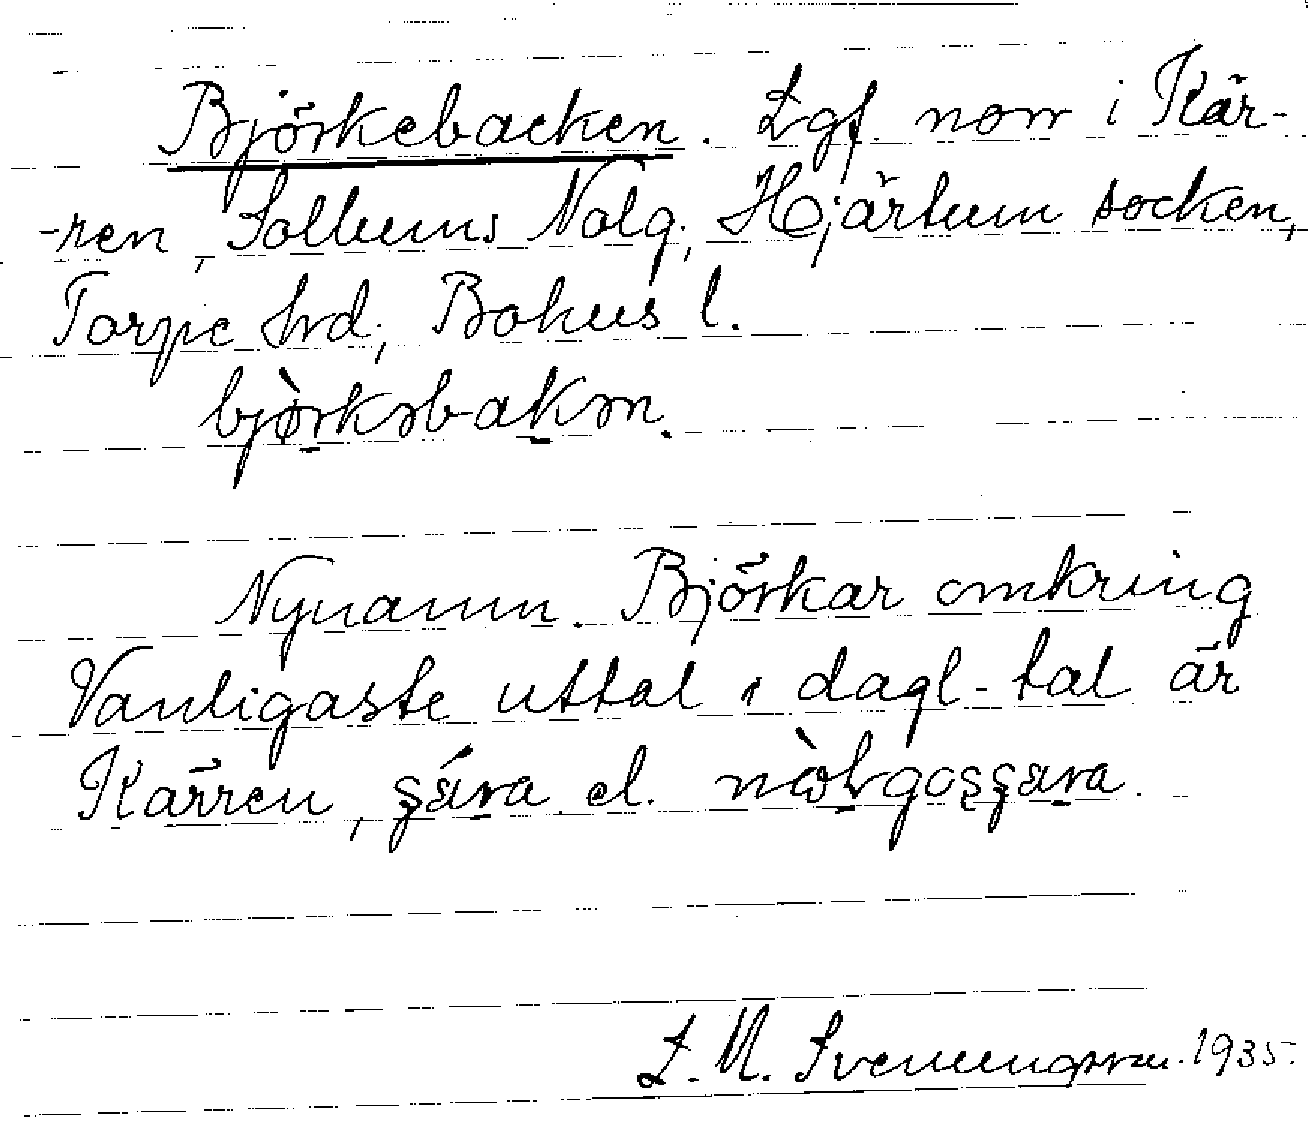 Björkebacken. Lgf. norr i Kär-
-ren, Sollums Nolg., Hjärtum socken,
Torpe hrd, Bohus l.
bjòrkəbakən.
Nynamn. Björkar omkring
Vanligaste uttal i dagl. tal är
Kärren, el.
L. M. Svenungsson. 1935.